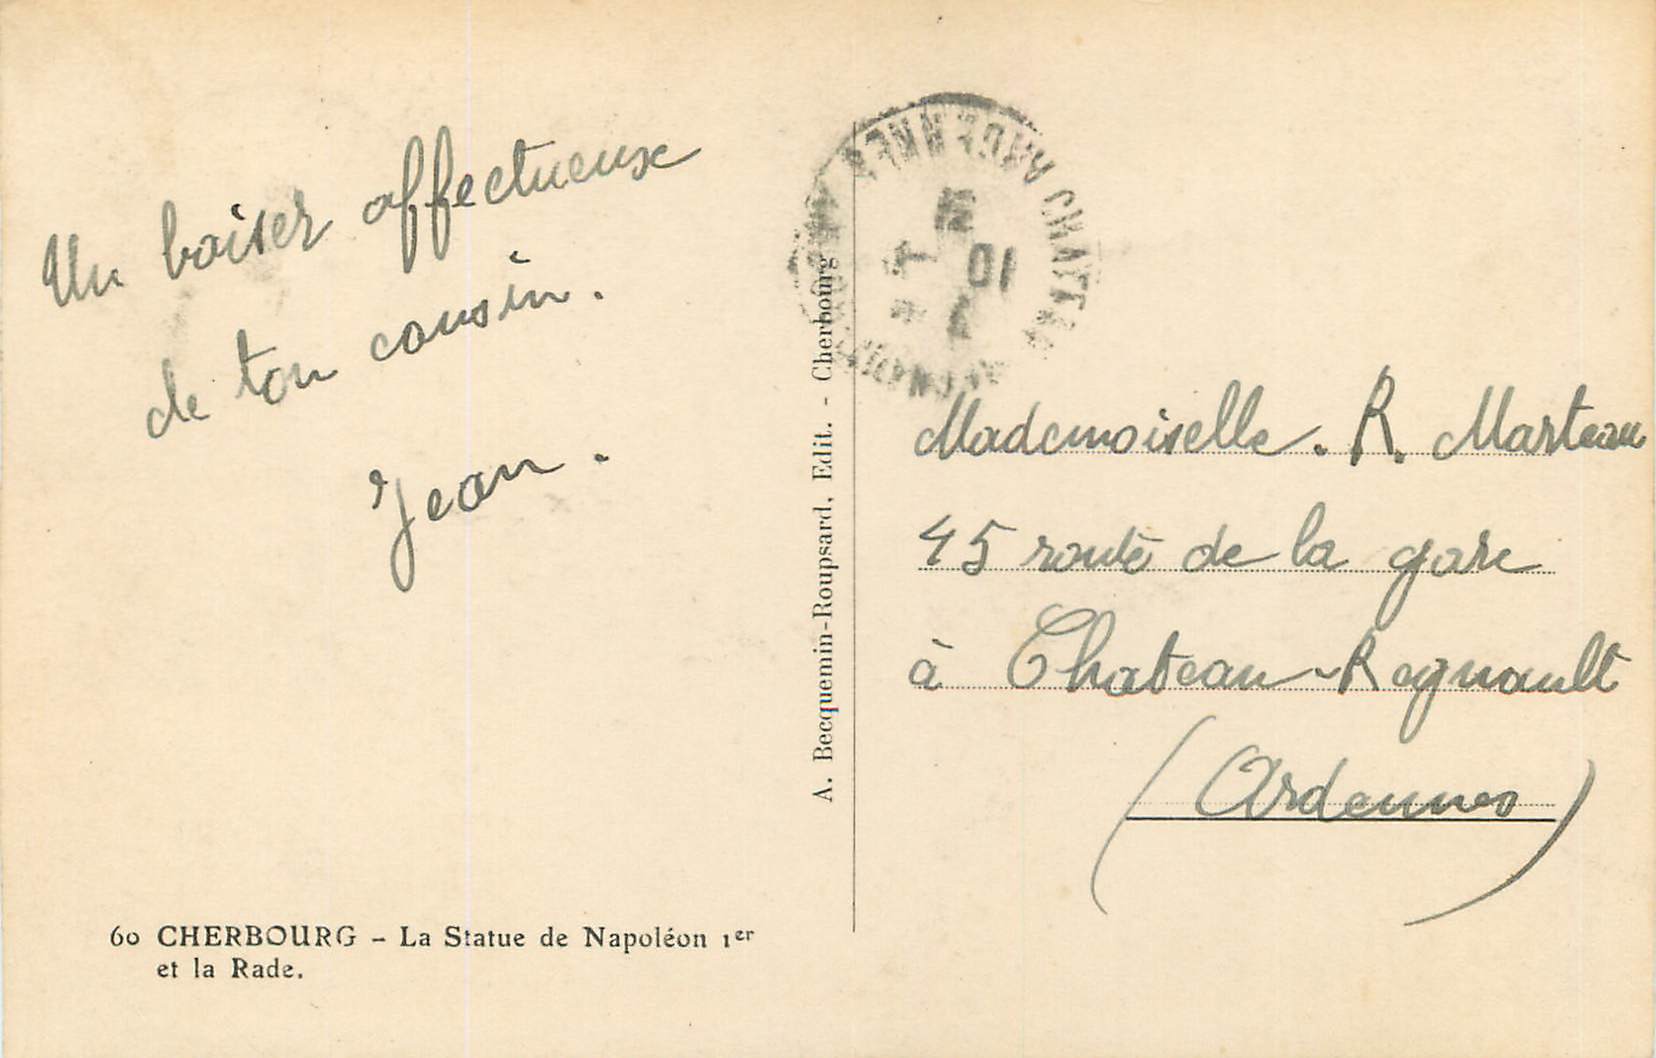 Un baiser affectueux
de ton cousin.
Jean.
60 CHERBOURG - La Statue de Napoléon 1er
et la Rade.
A. Becquemin-Roupsard, Edit. - Cherbourg
ARDENNES
CHATEAU
10
Mademoiselle. R. Marteau
45 route de la gare
à Chateau-Regnault
(Ardennes)